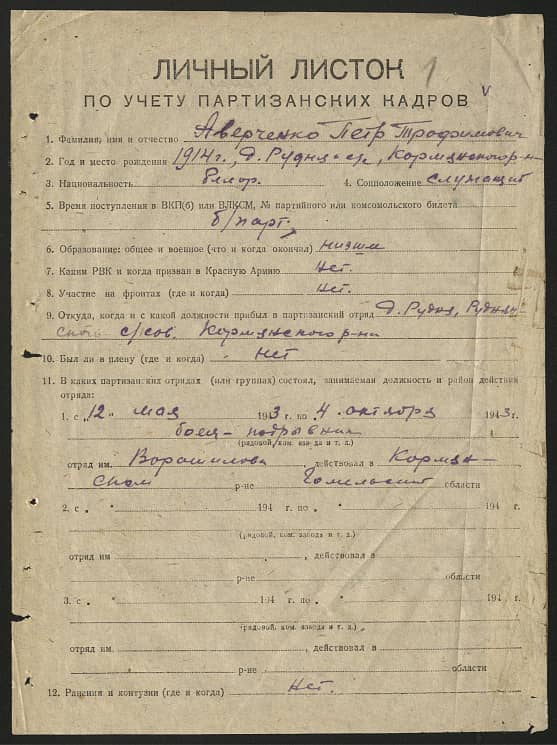 1
ЛИЧНЫЙ ЛИСТОК
ПО УЧЕТУ ПАРТИЗАНСКИХ КАДРОВ
V
1. Фамилия, имя и отчество Аверченко Пётр Трофимович
2. Год и место рождения 1914 г., д. Рудня, Кормянского р-н
3. Национальность белор. 4. Соцположение служащий
5. Время поступления в ВКП(б) или ВЛКСМ, № партийного или комсомольского билета
б/парт.
6. Образование: общее и военное (что и когда окончил) низшее
7. Каким РВК и когда призван в Красную Армию Нет.
8. Участие на фронтах (где и когда) Нет.
9. Откуда, когда и с какой должности прибыл в партизанский отряд Д. Рудня, Руднян-
ского с/сов. Кормянского р-на
10. Был ли в плену (где и когда) Нет
11. В каких партизанских отрядах (или группах) состоял, занимаемая должность и район действия
отряда:
1. с „12" мая 1943 г. по „4" октября 1943 г.
боец-подрывник
(рядовой, ком. взвода и т. д.)
отряд им. Ворошилова, действовал в Кормян-
ском р-не Гомельской области
2. с „ " 194 г. по „ " 194 г.
(рядовой, ком. взвода и т. д.)
отряд им. , действовал в
р-не области
3. с „ " 194 г. по „ " 194 г.
(рядовой, ком. взвода и т. д.)
отряд им. , действовал в
р-не области
12. Ранения и контузии (где и когда) Нет.